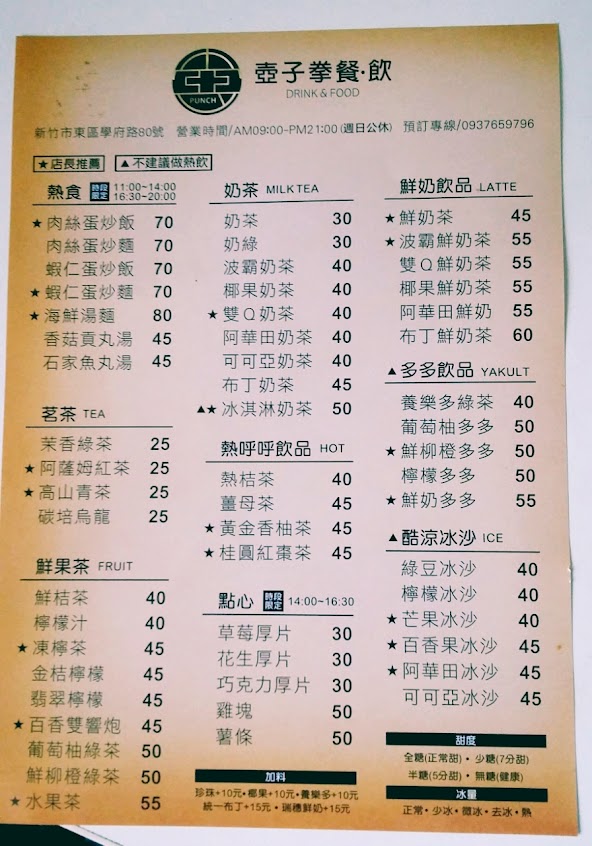 PUNCH
壺子拳餐·飲
DRINK & FOOD
新竹市東區學府路80號 營業時間/AM09:00-PM21:00(週日公休) 預訂專線/0937659796
★店長推薦 ▲不建議做熱飲
熱食 時段限定 11:00~14:00 16:30~20:00
★肉絲蛋炒飯 70
肉絲蛋炒麵 70
蝦仁蛋炒飯 70
★蝦仁蛋炒麵 70
★海鮮湯麵 80
香菇貢丸湯 45
石家魚丸湯 45
茗茶 TEA
茉香綠茶 25
★阿薩姆紅茶 25
★高山青茶 25
碳培烏龍 25
鮮果茶 FRUIT
鮮桔茶 40
檸檬汁 40
★凍檸茶 45
金桔檸檬 45
翡翠檸檬 45
★百香雙響炮 45
葡萄柚綠茶 50
鮮柳橙綠茶 50
★水果茶 55
奶茶 MILK TEA
奶茶 30
奶綠 30
波霸奶茶 40
椰果奶茶 40
★雙Q奶茶 40
阿華田奶茶 40
可可亞奶茶 40
布丁奶茶 45
▲★冰淇淋奶茶 50
熱呼呼飲品 HOT
熱桔茶 40
薑母茶 45
★黃金香柚茶 45
★桂圓紅棗茶 45
點心 時段限定 14:00~16:30
草莓厚片 30
花生厚片 30
巧克力厚片 30
雞塊 50
薯條 50
加料
珍珠+10元·椰果+10元·養樂多+10元
統一布丁+15元·瑞穗鮮奶+15元
鮮奶飲品 LATTE
★鮮奶茶 45
★波霸鮮奶茶 55
雙Q鮮奶茶 55
椰果鮮奶茶 55
阿華田鮮奶 55
布丁鮮奶茶 60
▲多多飲品 YAKULT
養樂多綠茶 40
葡萄柚多多 50
★鮮柳橙多多 50
檸檬多多 50
★鮮奶多多 55
▲酷涼冰沙 ICE
綠豆冰沙 40
檸檬冰沙 40
★芒果冰沙 40
★百香果冰沙 45
★阿華田冰沙 45
可可亞冰沙 45
甜度
全糖(正常甜)·少糖(7分甜)
半糖(5分甜)·無糖(健康)
冰量
正常·少冰·微冰·去冰·熱